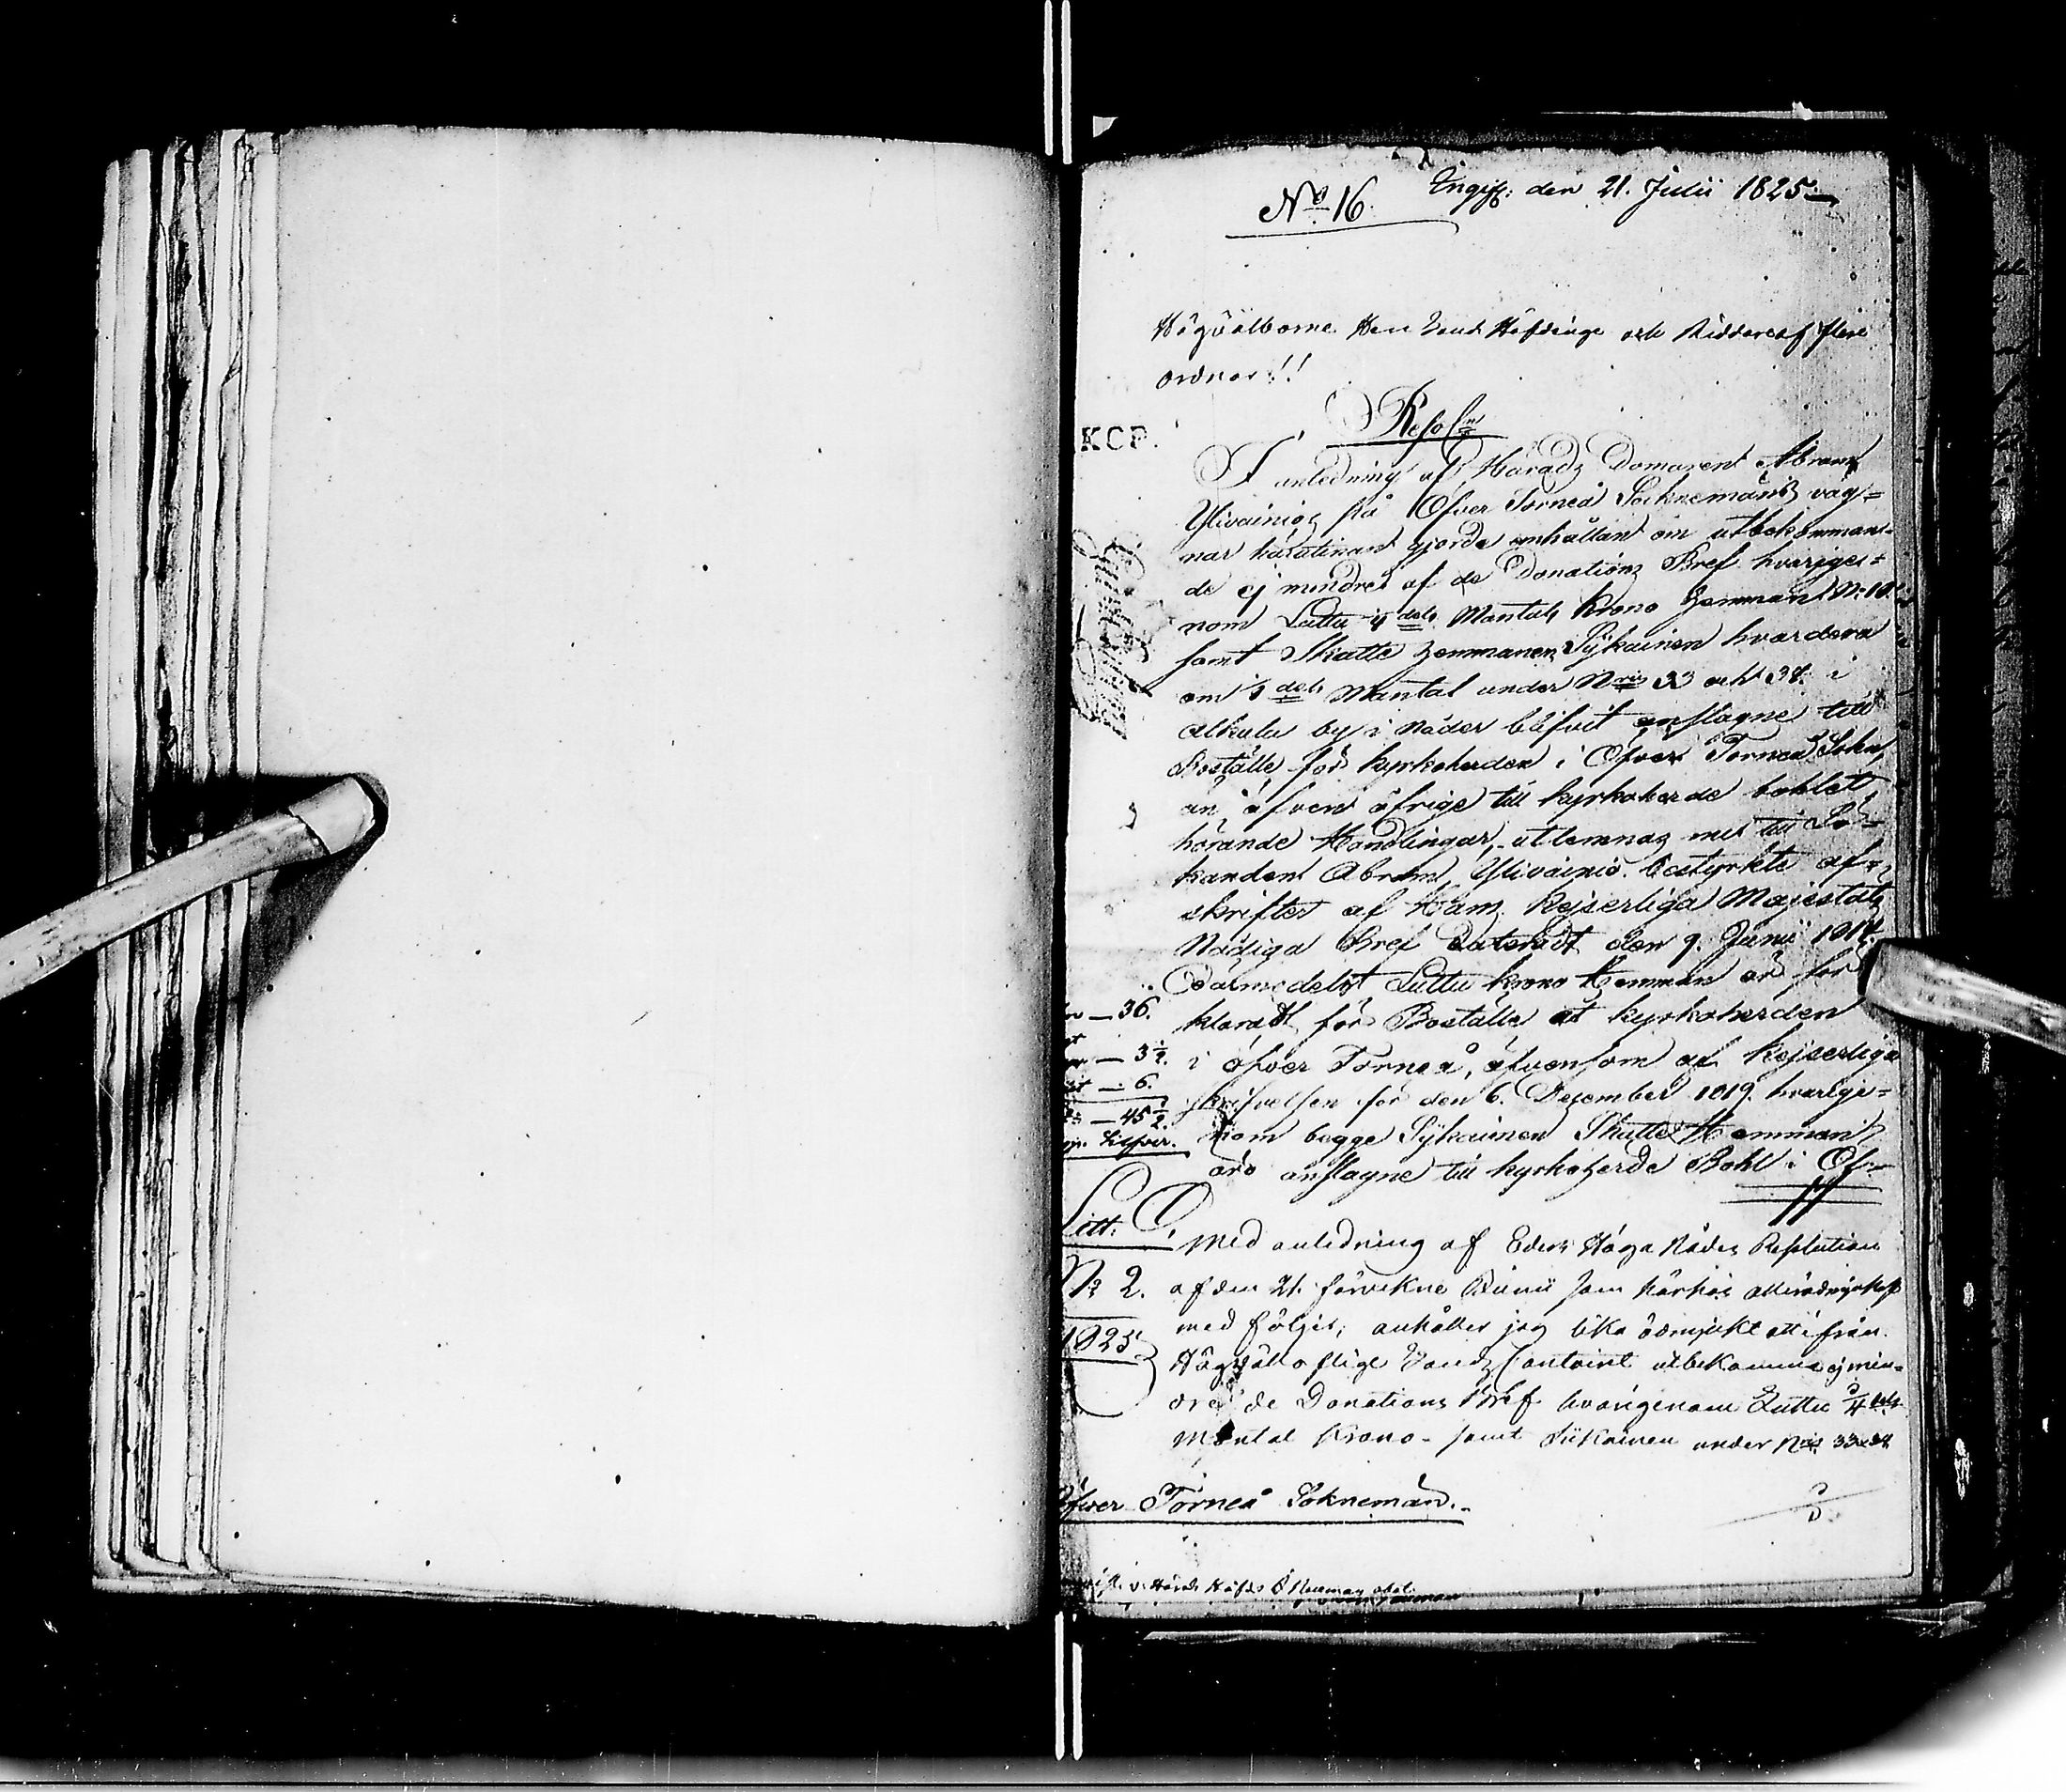 No 16. Ingift: den 21. Julii 1825
Högvälborne Herr Lands Höfdinge och Riddare af flere
Ordnar!!
Resoln
KCF.
I anledning af Härads Domaren Abram
Ylivainios på Öfver Torneå Socknemäns väg=
nar härstinans gjorde anhållan om utbekomman=
de ej mindre af de Donations Bref hvarigen=
nom Luttu dels Mantals Krono Hemman No 10.
samt Skatte Hemmanen Sykäinen hvardera
om dels Mantal under Nris 33 och 34. i
Alkula by i Nåder blifvit anslagne till
Boställe för Kyrkoherden i Öfver Torneå Sokn,
än äfven öfrige till Kyrkoherde bohlet
hörande Handlingar, utlemnas nu till Sö=
kanden Abram Ylivainio bestyrkte af=
skrifter af Hans Kejserliga Majestäts
Nådiga Bref Dateradt den 9. Junii 1814.
Därmedelst Luttu Krono Hemman är för
klaradt för Boställe åt Kyrkoherden
i Öfver Torneå, äfvensom af Kejserliga
skrifvelsen för den 6. December 1819. hvarige=
nom begge Sykäinen Skatte Hemman
äro anslagne till Kyrkoherde Bohl i Öf=
— 36.
— 3 1/2.
— 6.
— 45 1/2.
Silfver.
Litt. D.
No 2.
1825
Med anledning af Eders Höga Nådes Resolution
af den 21. förvekne Junii som härhos allerödmjukast
med följer, anhåller jag lika ödmjukt att ifrån
Högvällofliga Lands Contoiret utbekomma ej min=
dre de Donations Bref hvarigenom Luttu 3/4 dels
Mantal Krono- samt Sykäinen under Nris 33 & 34
Öfver Torneå Sokneman.